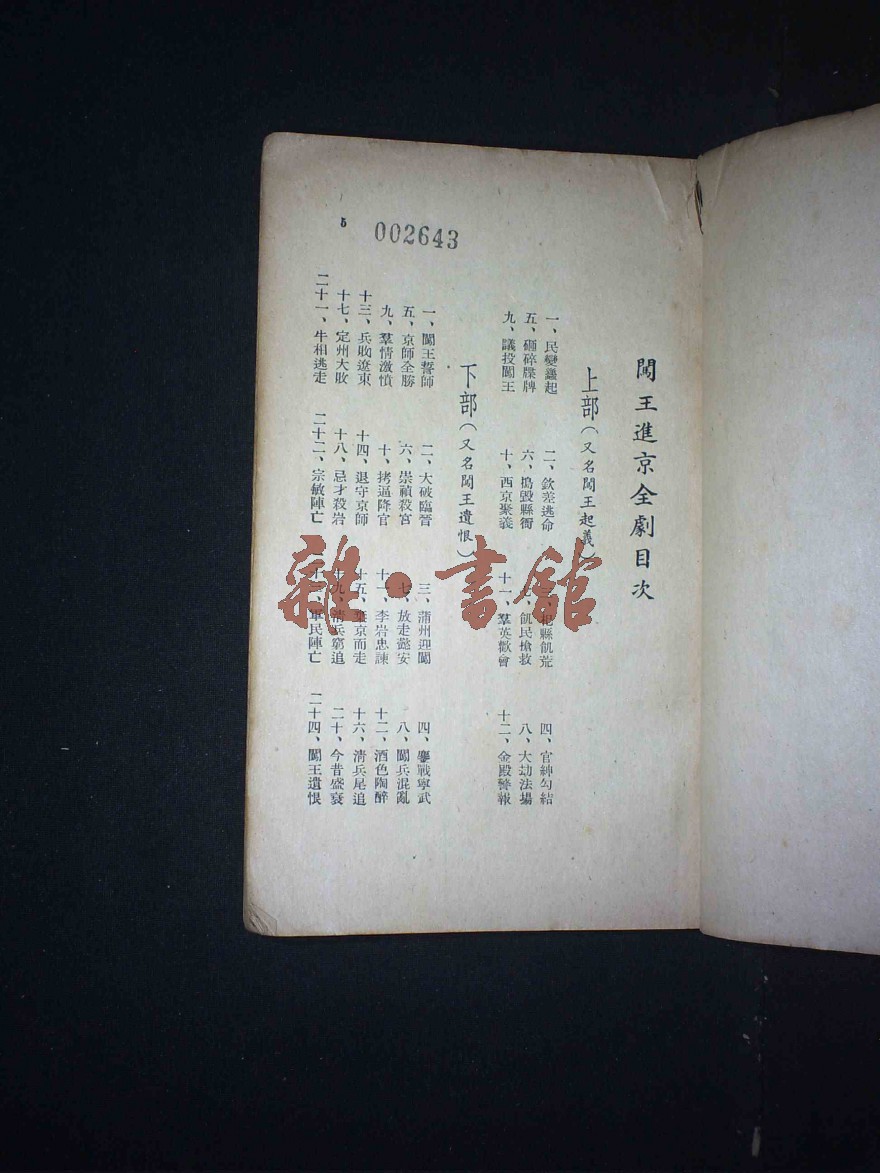 闖王進京全劇目次
上部(又名闖王起義)
一、民變蠭起 二、欽差逃命 杞縣飢荒 四、官紳勾結
五、砸碎牒牌 六、搗毀縣衙 七、飢民搶救 八、大劫法場
九、議投闖王 十、西京聚義 十一、羣英歡會 十二、金殿警報
下部(又名闖王遺恨)
一、闖王誓師 二、大破臨晉 三、蒲州迎闖 四、鏖戰寧武
五、京師全勝 六、崇禎殺宮 七、放走懿安 八、闖兵混亂
九、羣情激憤 十、拷逼降官 十一、李岩忠諫 十二、酒色陶醉
十三、兵敗遼東 十四、退守京師 十五、棄京而走 十六、清兵尾追
十七、定州大敗 十八、忌才殺岩 十九、清兵窮追 二十、今昔盛衰
二十一、牛相逃走 二十二、宗敏陣亡 軍民陣亡 二十四、闖王遺恨
5
002643
雜·書館